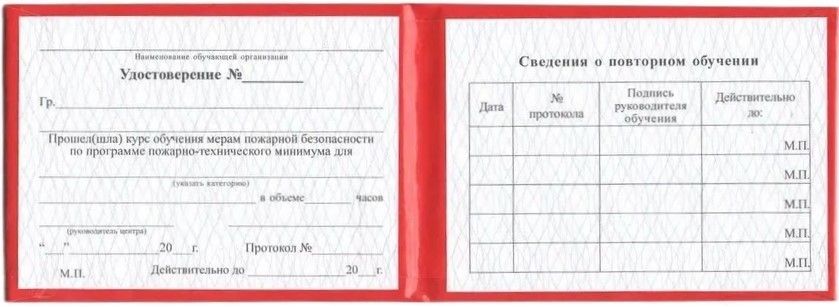 Наименование обучающей организации
Удостоверение №________
Гр.
Прошел(шла) курс обучения мерам пожарной безопасности
по программе пожарно-технического минимума для
(указать категорию)
в объеме ______ часов
(руководитель центра)
“___”____________20___г. Протокол №__________
М.П. Действительно до ______________20___г.
Сведения о повторном обучении
Дата
№
протокола
Подпись
руководителя
обучения
Действительно
до:
М.П.
М.П.
М.П.
М.П.
М.П.